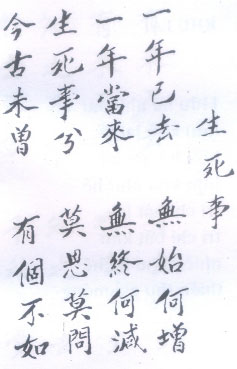 生死事
一年已去 無始何增
一年當來 無終何減
生死事兮 莫思莫問
今古未曾 有個不如